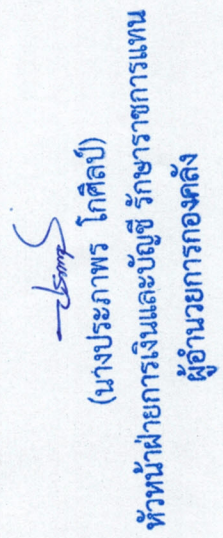 (นางประภาพร โกศิลป์)
หัวหน้าฝ่ายการเงินและบัญชี รักษาราชการแทน
ผู้อำนวยการกองคลัง